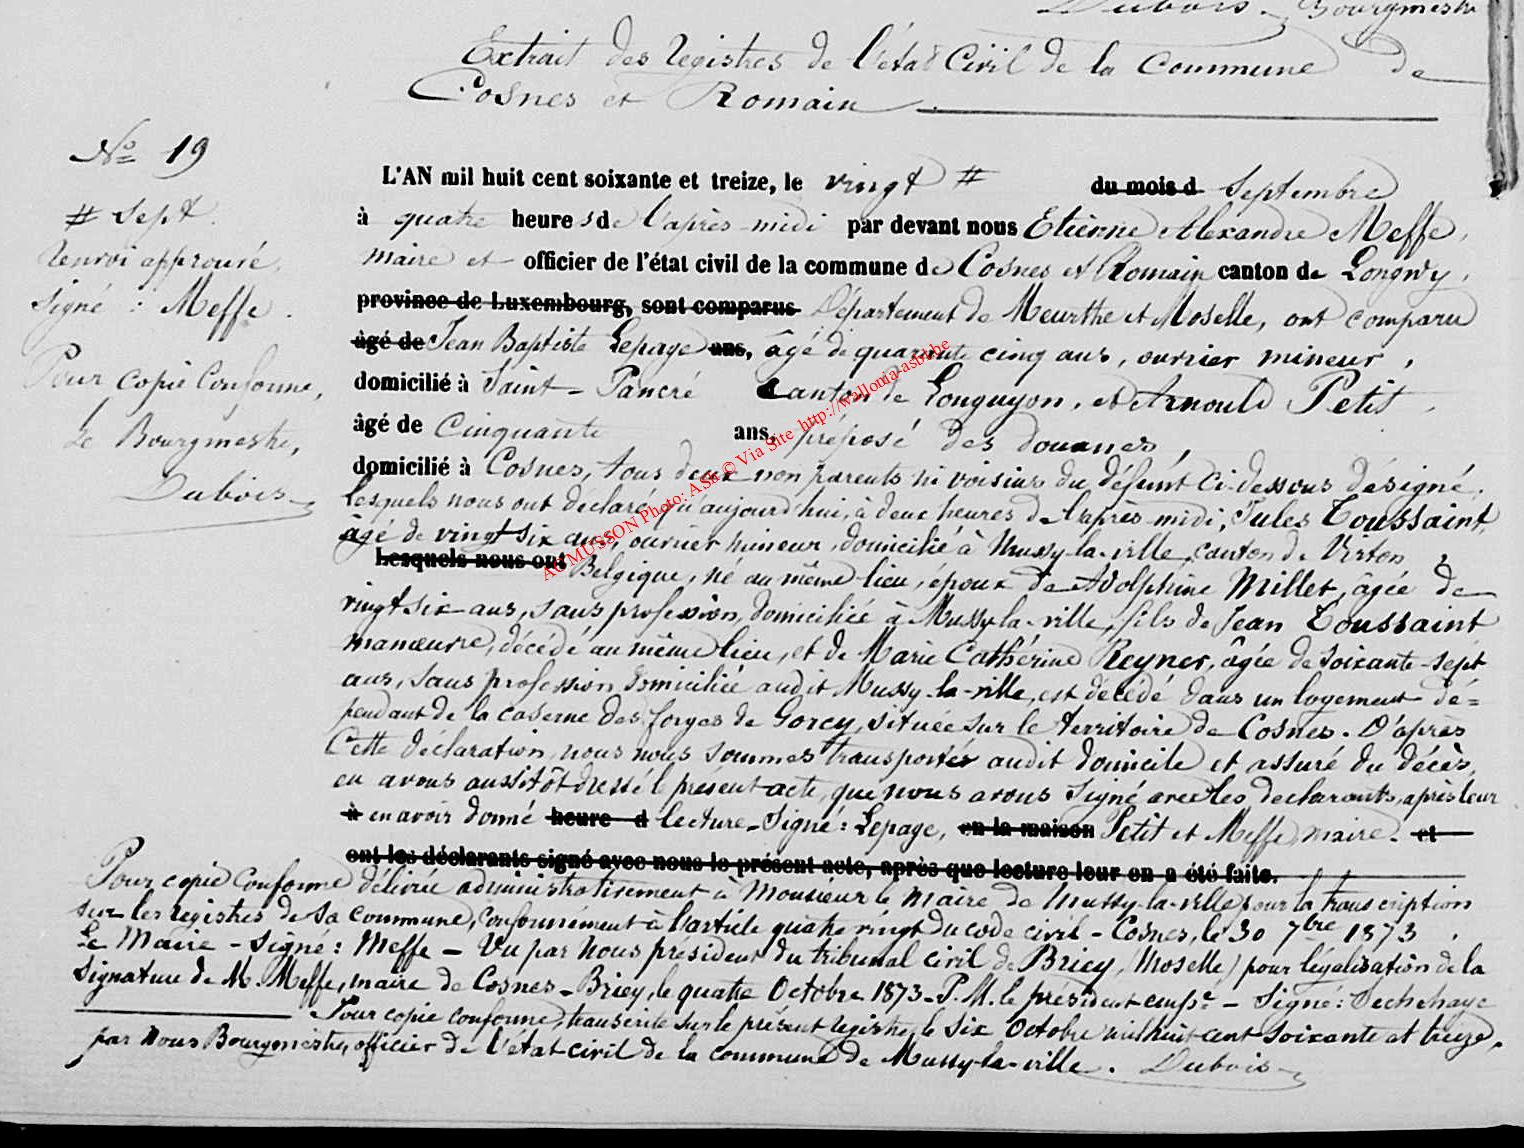 Dubois. Bourgmestre
Extrait des Registres de l'état Civil de la Commune de
Cosnes et Romain
No 19
# Sept.
Renvoi approuvé.
Signé : Meffe.
Pour copie Conforme,
Le Bourgmestre,
Dubois
L'AN mil huit cent soixante et treize, le vingt # du mois d Septembre
à quatre heures de l'après-midi par devant nous Etienne Alexandre Meffe,
maire et officier de l'état civil de la commune de Cosnes et Romain canton de Longwy,
province de Luxembourg, sont comparus Département de Meurthe et Moselle, ont comparu
âgé de Jean Baptiste Lepage ans, âgé de quarante cinq ans, ouvrier mineur,
domicilié à Saint-Pancré Canton de Longuyon, et Arnould Petit,
âgé de Cinquante ans, préposé des douanes,
domicilié à Cosnes, tous deux non parents ni voisins du défunt Ci-dessous désigné.
Lesquels nous ont déclaré qu'aujourd'hui, à deux heures de l'après-midi, Jules Toussaint,
âgé de vingt six ans, ouvrier mineur, domicilié à Mussy-la-ville, canton de Virton,
Lesquels nous ont Belgique, né au même lieu, époux de Adolphine Millet, âgée de
vingt six ans, sans profession, domiciliée à Mussy-la-ville, fils de Jean Toussaint
manœuvre, décédé au même lieu, et de Marie Cathérine Reyner, âgée de soixante-sept
ans, sans profession, domiciliée audit Mussy-la-ville, est décédé dans un logement dé=
pendant de la caserne des forges de Gorcy, située sur le territoire de Cosnes. D'après
Cette déclaration, nous nous sommes transportés audit domicile et assuré du décès,
en avons aussitôt dressé le présent acte, que nous avons signé avec les declarants, après leur
à en avoir donné heure d lecture. Signé : Lepage, en la maison Petit et Meffe, maire. et
ont les déclarants signé avec nous le présent acte, après que lecture leur en a été faite.
Pour copie Conforme délivrée administrativement à Monsieur le Maire de Mussy-la-ville pour la transcription
sur les registres de sa commune, conformément à l'article quatre vingt du code civil - Cosnes, le 30 7bre 1873.
Le Maire - Signé : Meffe - Vu par nous président du tribunal civil de Briey, (Moselle) pour légalisation de la
signature de M. Meffe, maire de Cosnes - Briey, le quatre Octobre 1873 - P. M. le président - Signé :
Pour copie conforme, transcrite sur le présent registre, le six Octobre mil huit cent soixante et treize,
par Nous Bourgmestre, officier de l'état-civil de la commune de Mussy-la-ville. Dubois
AC MUSSON Photo: ASBL © Via Site http://wallonia-asbl.be